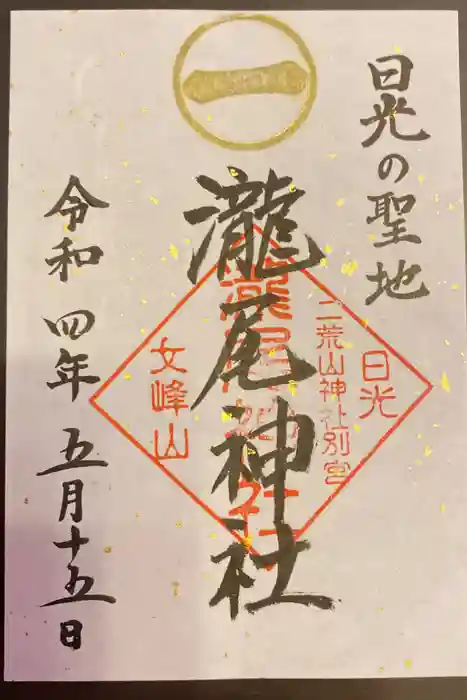 一
日光の聖地
瀧尾神社
日光
二荒山神社別宮
瀧尾神社
女峰山
令和四年五月十五日